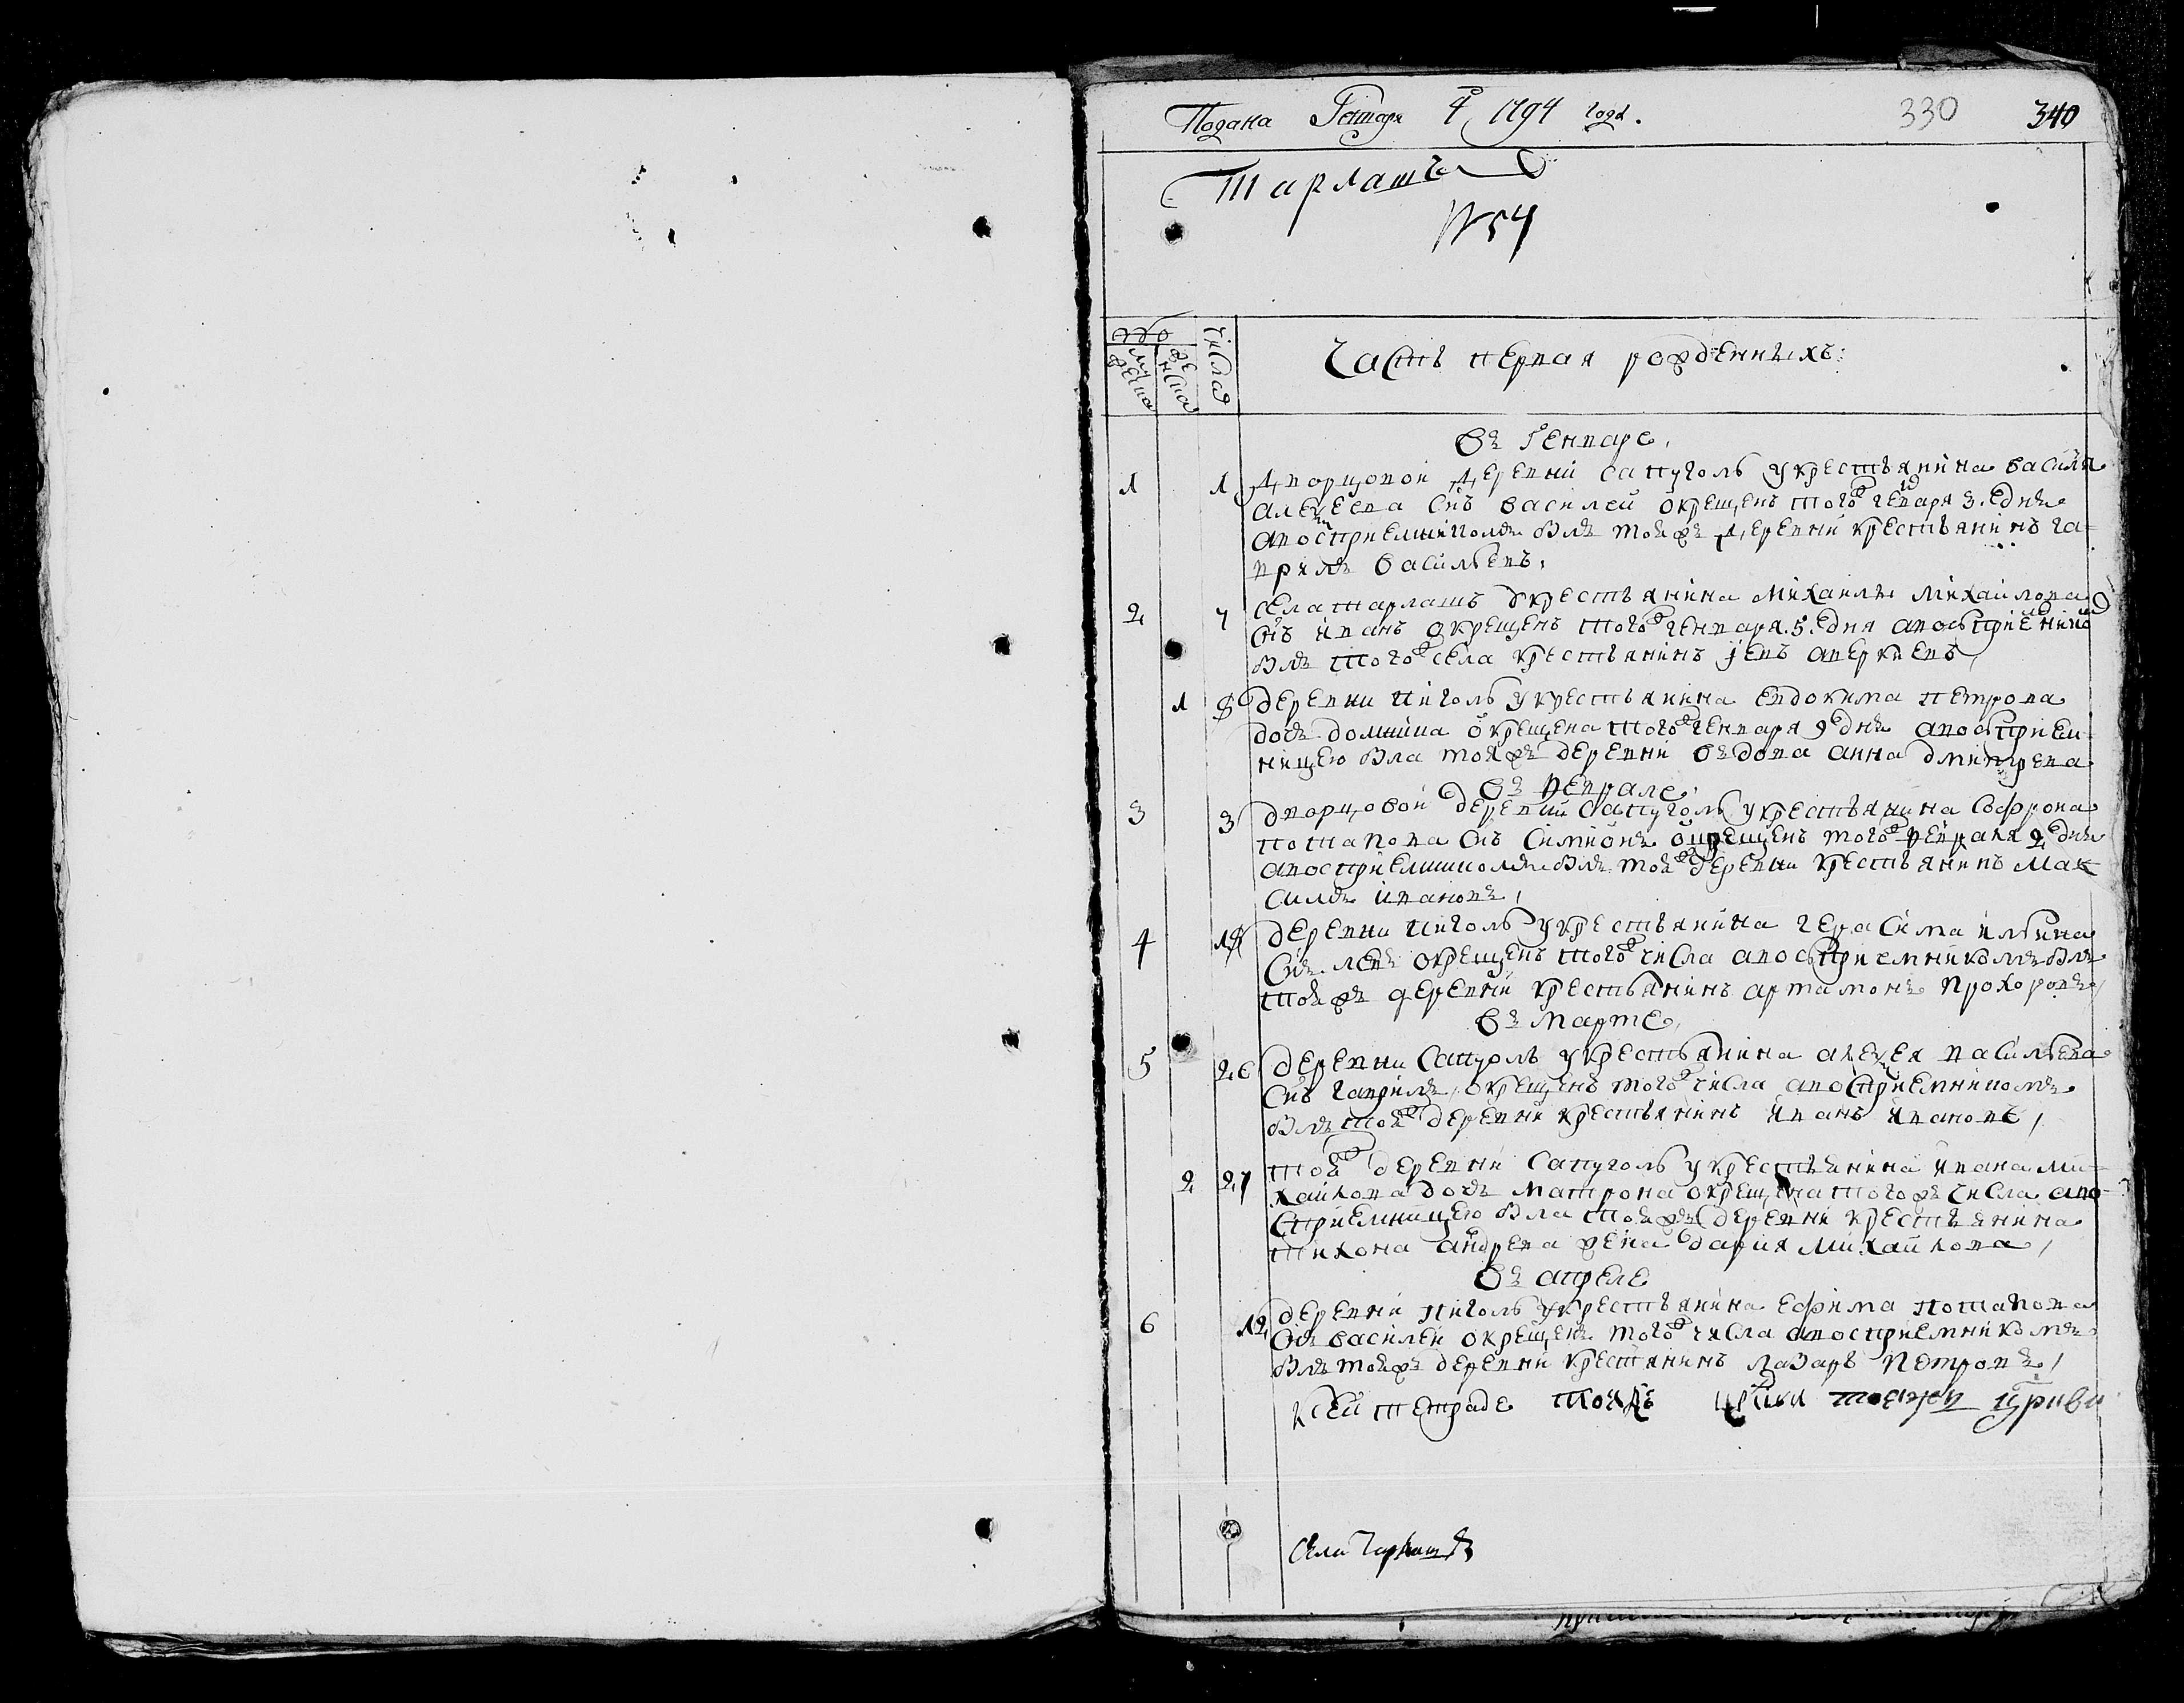 Подана Генваря 4 1794 года. 330 340
Тарлашъ
№ 54
число
мужеска
женска
числа
Часть первая рожденныхъ:
Въ Генваре,
1 1 Дворцовой деревни Сапуголь у крестьянина василя
алеѯеева снъ василей окрещенъ того генваря 3. дня
авосприемникомъ былъ тояжъ деревни крестьянинъ га-
врилъ васильевъ,
2 4 села тарлашъ у крестьянина михаилъ михайлова
снъ иванъ окрещенъ того генваря. 5. дня авосприемнико
былъ того села крестьянинъ аверкиевъ,
1 8 деревни Niголь у крестьянина евдокима петрова
дочь домнина окрещена того генваря 9 дня авосприем-
ницею была тояжъ деревни въдова анна дмитрева
Въ Ѳеврале,
3 3 дворцовой деревни сапуголь у крестьянина софрона
потапова снъ симионъ окрещенъ того февраля 2 дня
авосприемникомъ былъ тоя деревни крестьянинъ мак
симъ ивановъ,
4 18 деревни у крестьянина герасима ильина
снъ левъ окрещенъ того числа авосприемникомъ былъ
тояжъ деревни крестьянинъ артамонъ прохоровъ,
Въ марте,
5 26 деревни Сапуголь у крестьянина алеѯея васильева
снъ гаврилъ, окрещенъ того числа авосприемникомъ
былъ тоя деревни крестьянинъ иванъ ивановъ,
2 27 тоя деревни сапуголь у крестьянина ивана ми-
хайлова дочь матрона окрещена тогожъ числа аво-
сприемницею была тояжъ деревни крестьянина
тихона андрева жена дария михайлова,
Въ апреле
6 12 деревни у крестьянина ефима потапова
снъ василей окрещенъ того числа авосприемникомъ
былъ тояжъ деревни крестянинъ лазарь петровъ,
к сей тетраде
села Тарлашъ